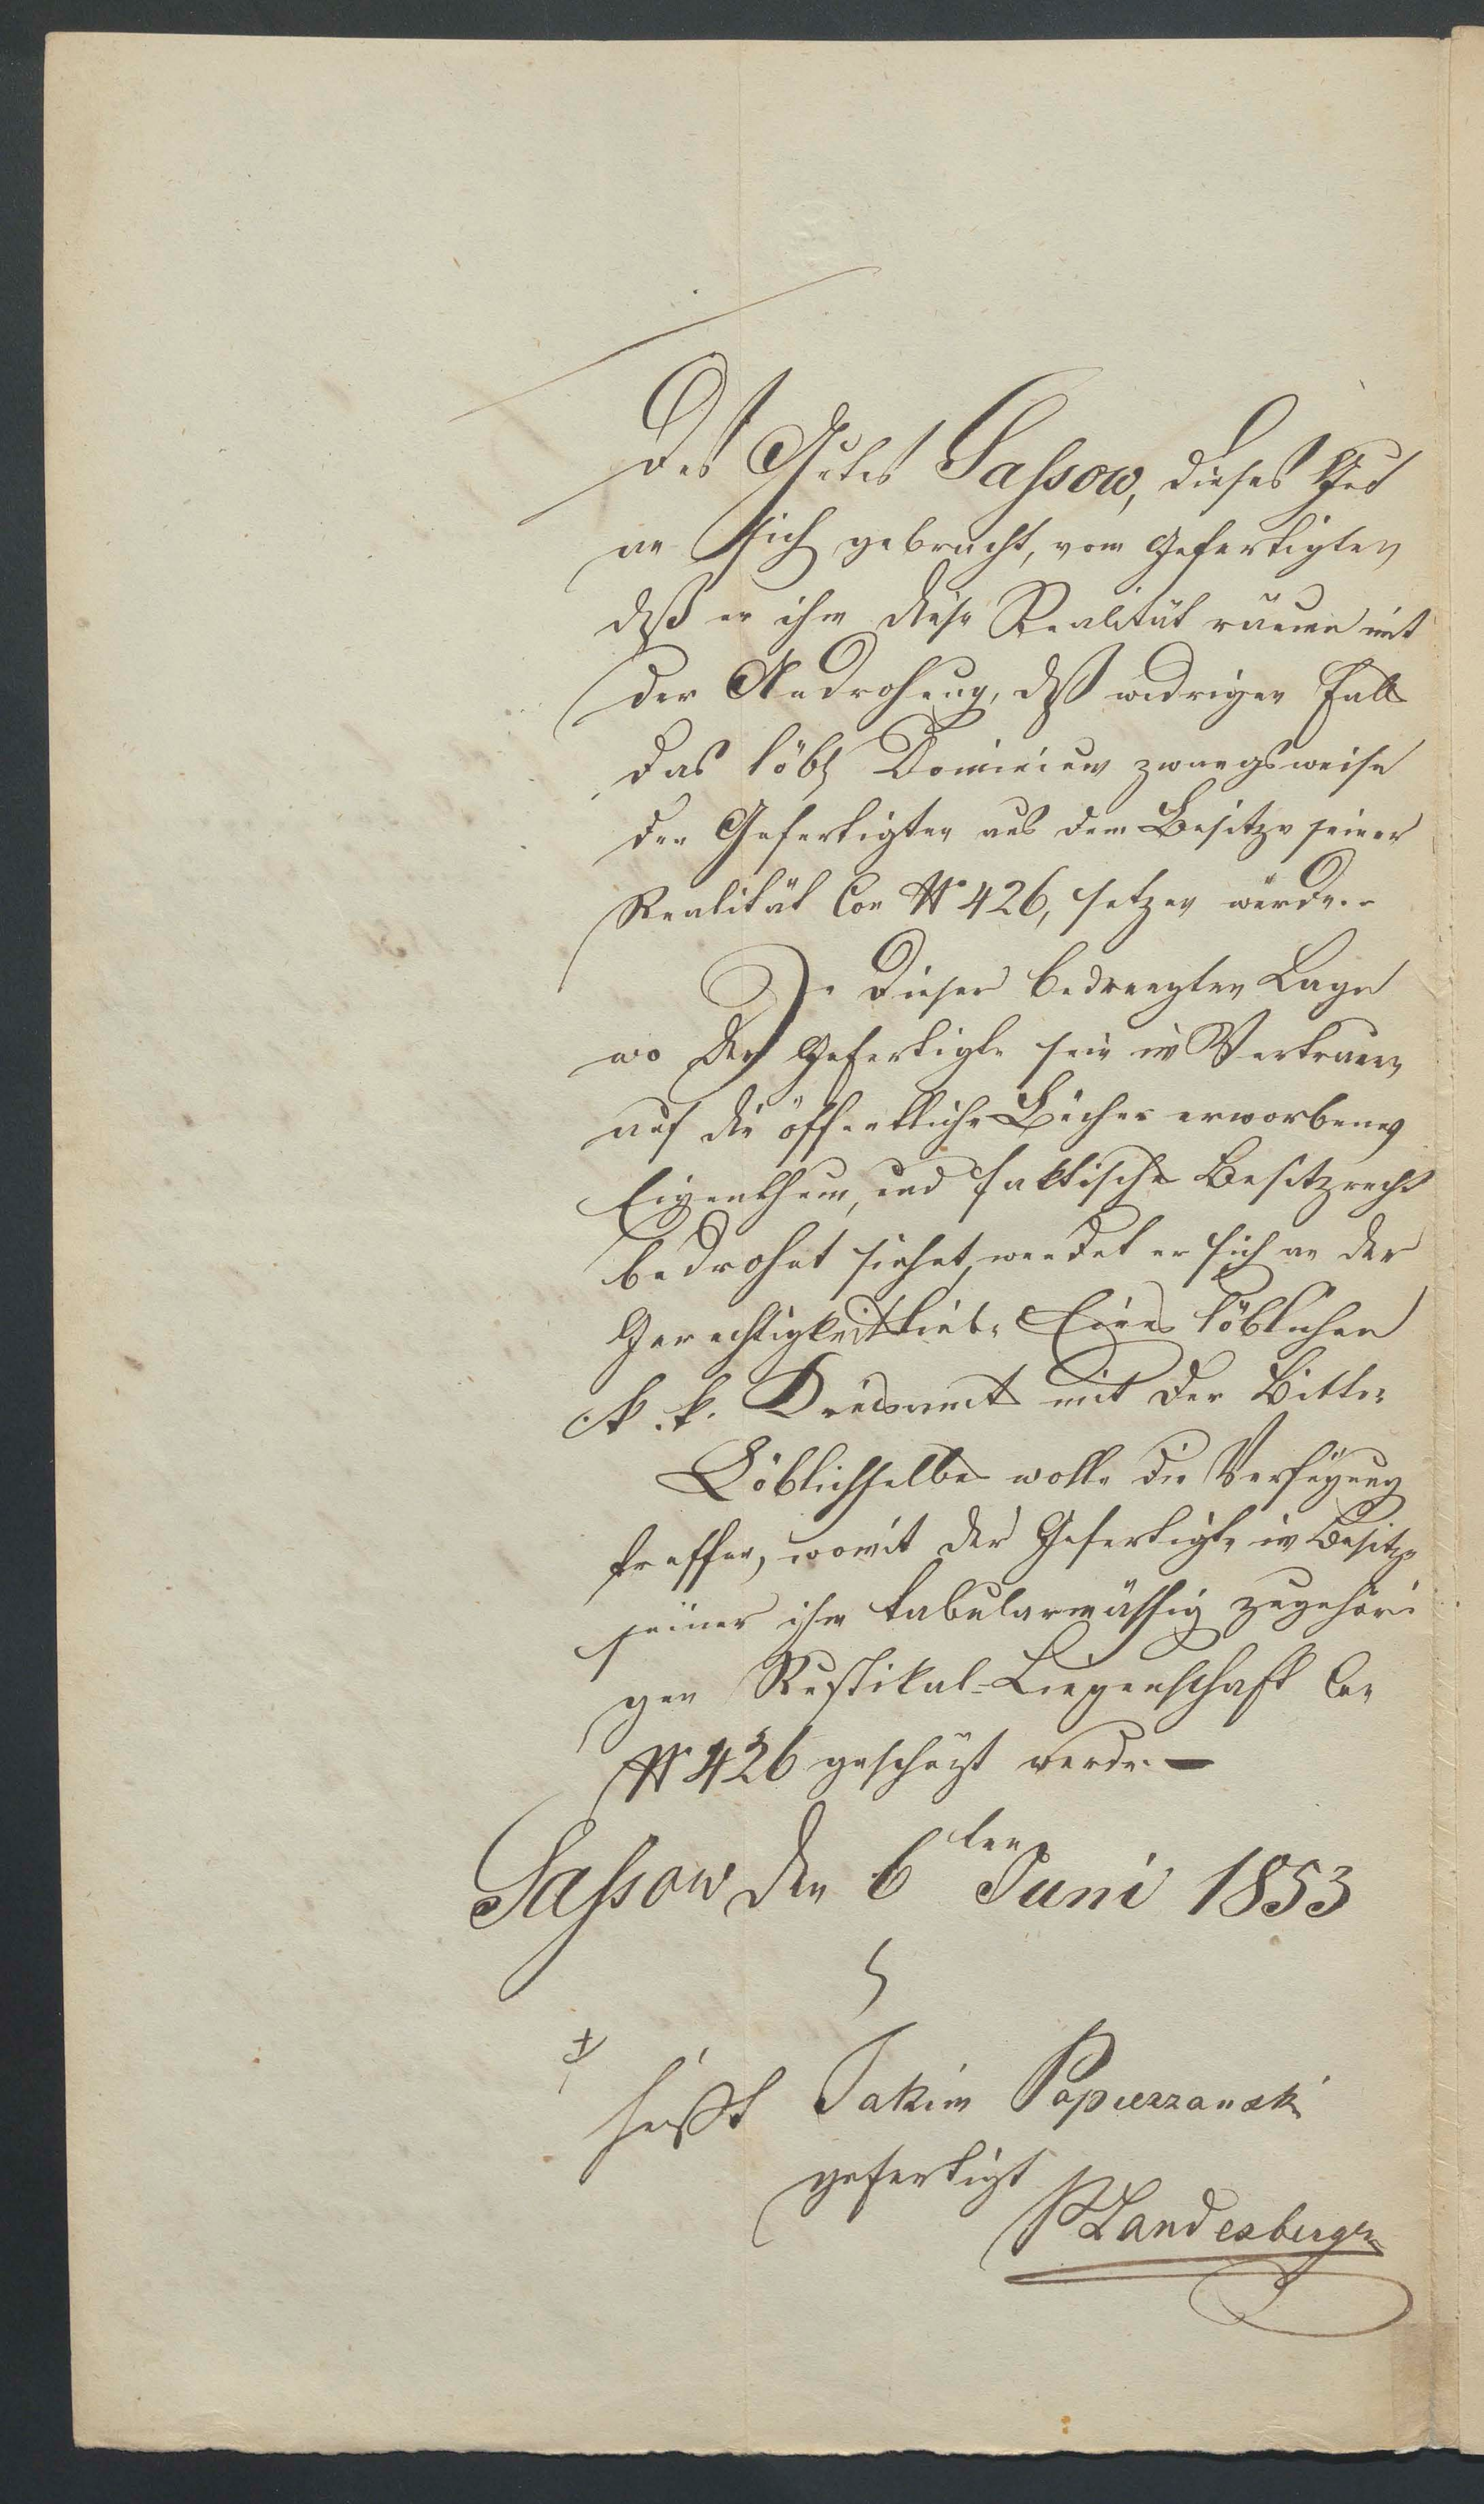 des Gutes Saſsow, dieses Gut
an sich gebracht, vom Gefertigten
daß er ihm diese Realität räume mit
der Androhung, daß widrigen Falls
das löbl Dominium zwangsweise
den Gefertigten aus dem Besitze seiner
Realität Con N° 426, setzen würde.-
In dieser bedrengten Lage
wo der Gefertigte sein im Vertrauen
auf die öffentliche Bücher erworbenes
Eigenthum, und faktische Besitzrecht
bedrohet siehet, wendet er sich an der
Gerechtigkeitliebe Eines löblichen
k. k. mit der Bitte
Löblichselbe wolle die Verfügung
treffen, womit der Gefertigte im Besitze
seiner ihm tabularmäßig zugehöri
gen Rustikal-Liegenschaft Con
N° 426 geschüzt werde.—
Saſsow den 6ten Juni 1853
+
heißt Jakim Papierzanski
gefertigt
Landesberger